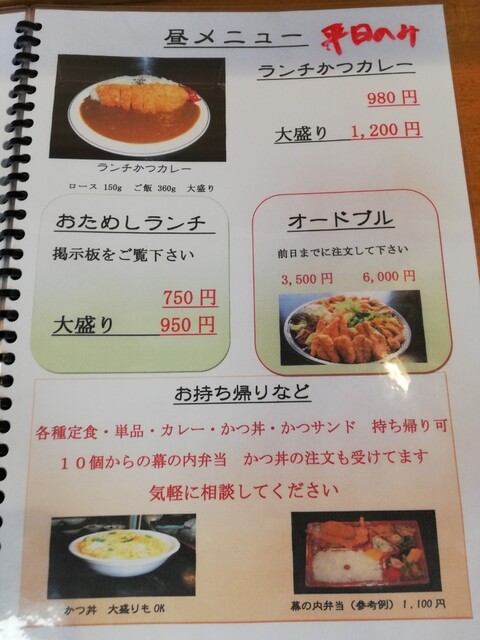 昼メニュー 平日のみ
ランチかつカレー
980円
大盛り 1,200円
ランチかつカレー
ロース 150g ご飯 360g 大盛り
おためしランチ
掲示板をご覧下さい
750円
大盛り 950円
オードブル
前日までに注文して下さい
3,500円 6,000円
お持ち帰りなど
各種定食・単品・カレー・かつ丼・かつサンド 持ち帰り可
10個からの幕の内弁当 かつ丼の注文も受けてます
気軽に相談してください
かつ丼 大盛りもOK
幕の内弁当(参考例)1,100円